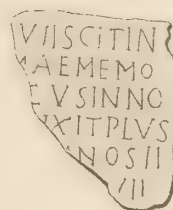 VIISCITIN
MAEMEMO
VSINNO
IXITPLVS
NNOSII
III